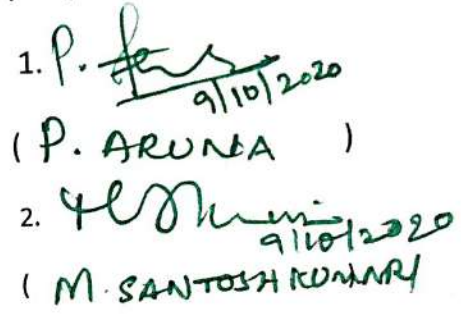 1. P.
9/10/2020
( P. ARUNA )
2.
9/10/2020
( M. SANTOSH KUMARI